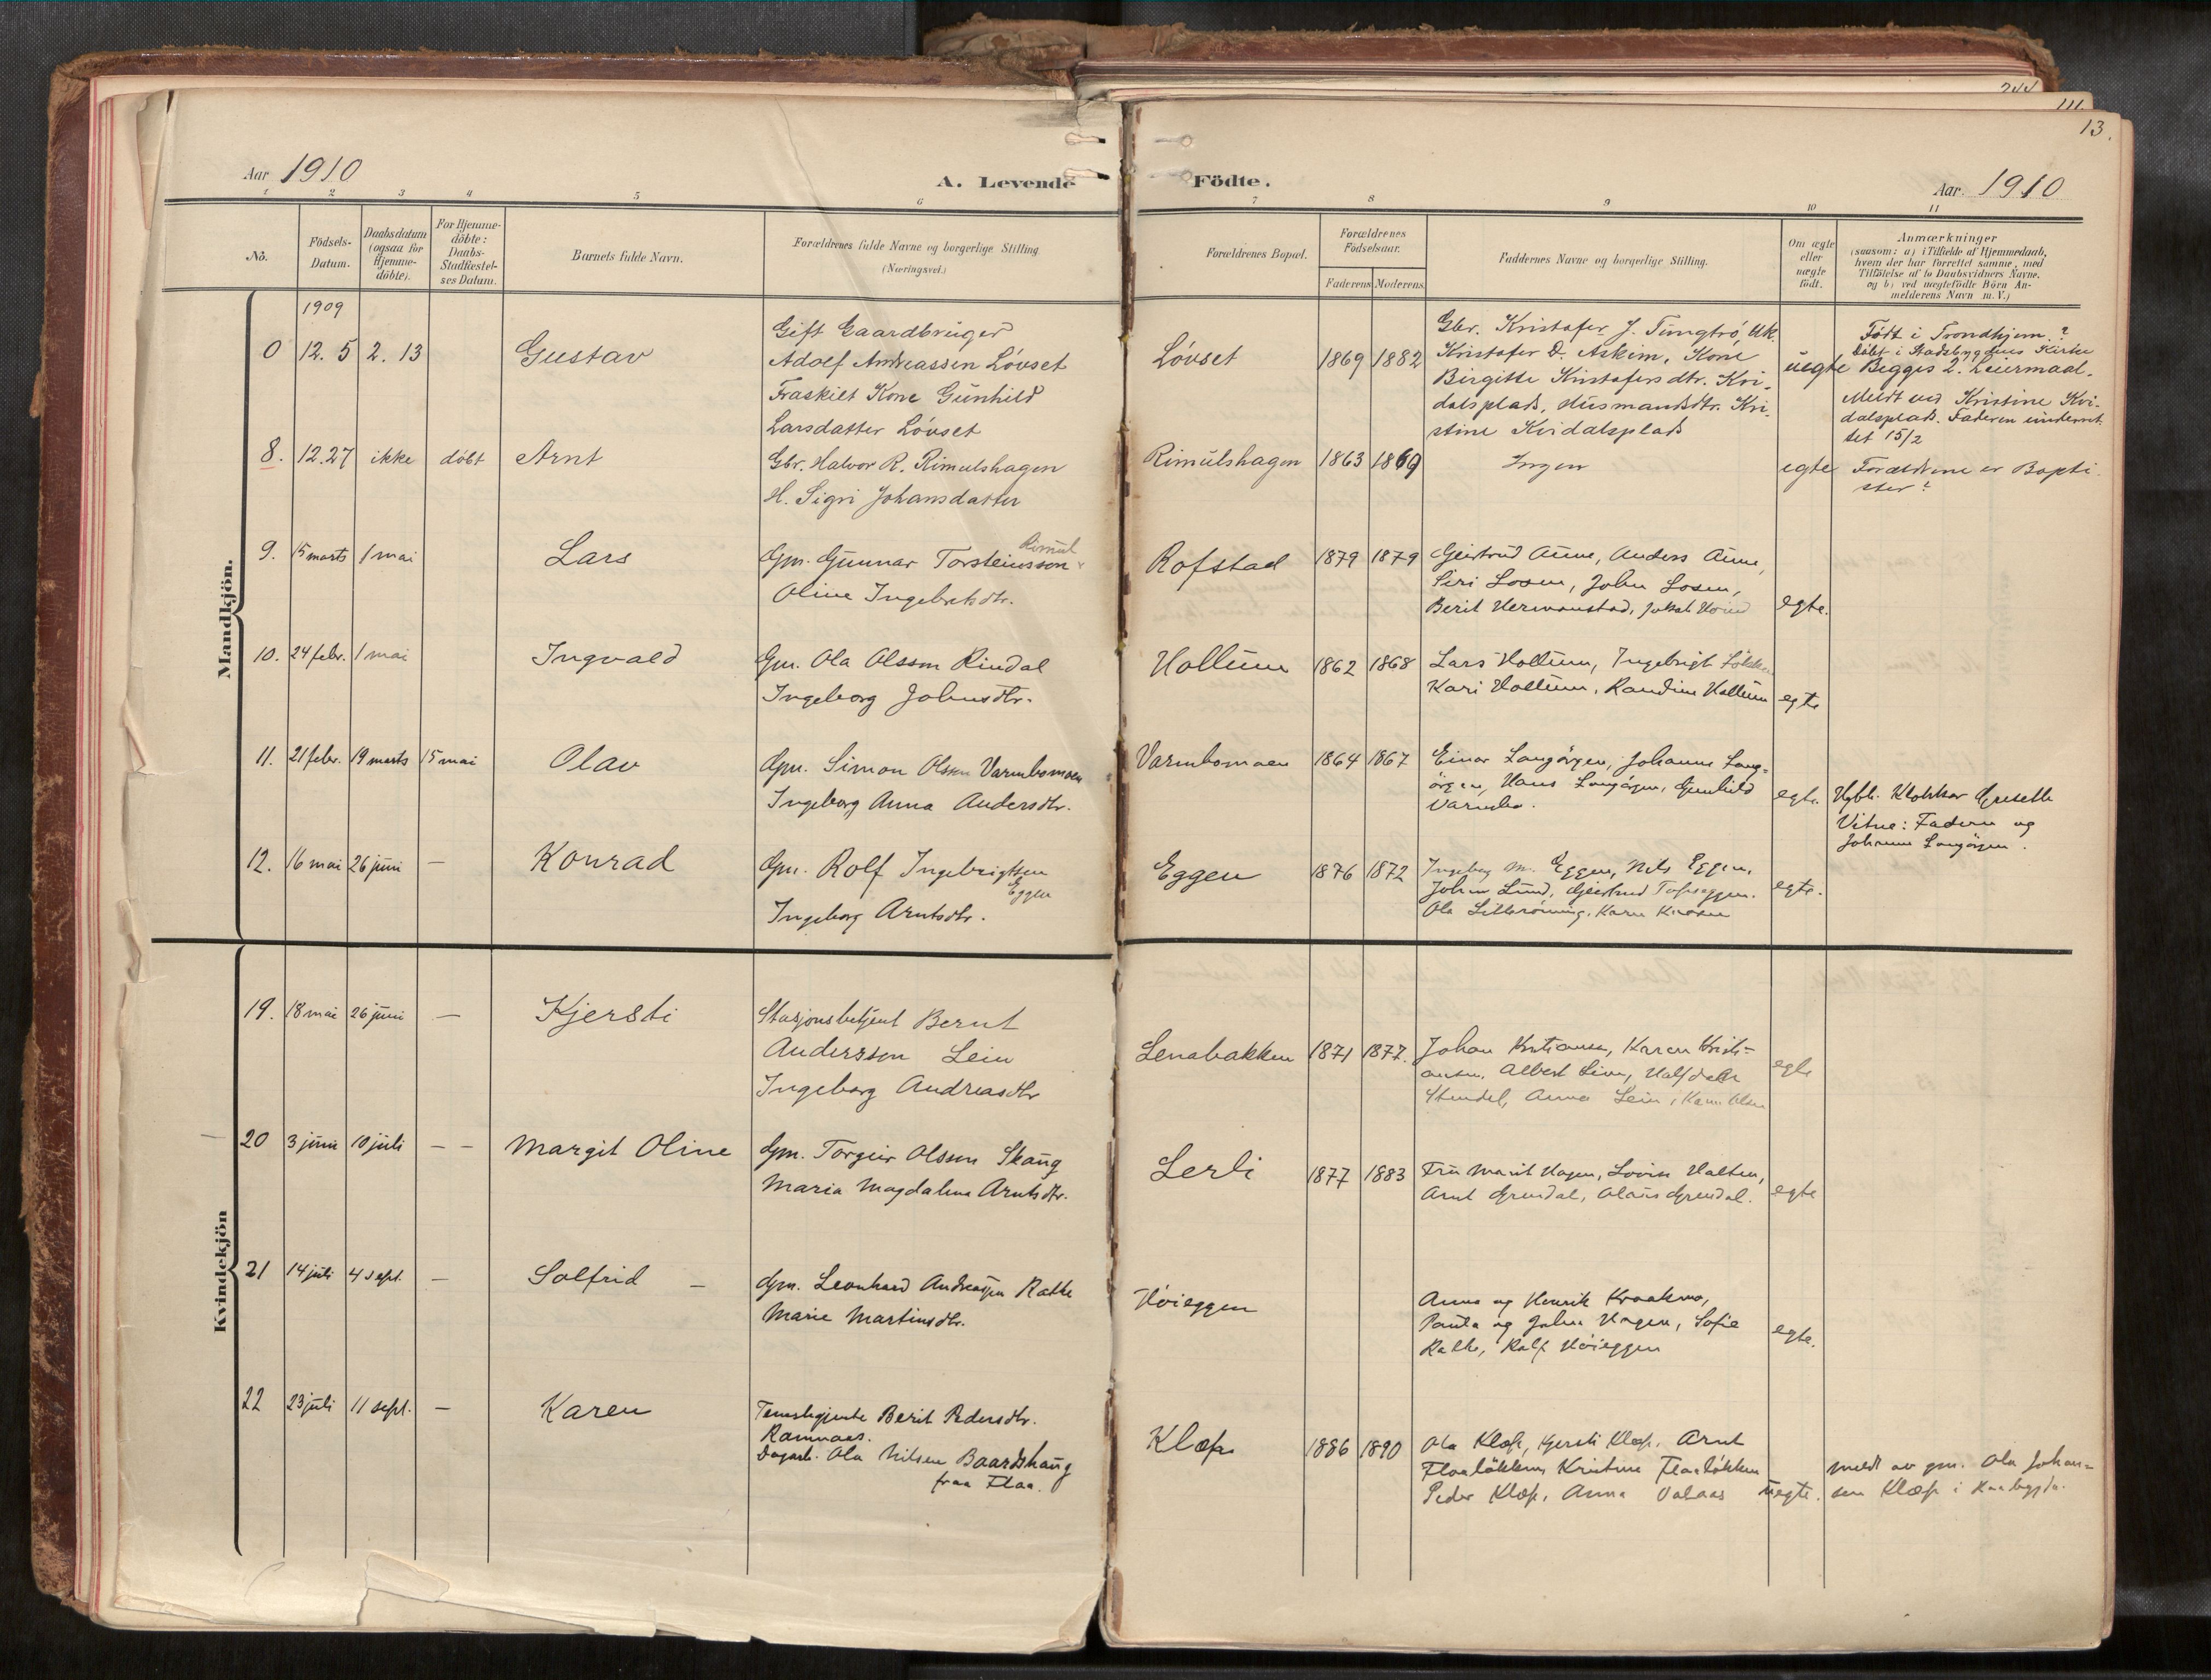 244
111.
13.
Aar 1910
A. Levende Födte.
Aar. 1910
1 2 3 4 5 6 7 8 9 10 11
No.
Födsels-
Datum.
Daabsdatum
(ogsaa for
Hjemme-
döbte).
For Hjemme-
döbte:
Daabs-
Stadfæstel-
ses Datum.
Barnets fulde Navn.
Forældrenes fulde Navne og borgerlige Stilling
(Næringsvei.)
Forældrenes Bopæl.
Forældrenes
Födselsaar.
Faderens Moderens
Faddernes Navne og borgerlige Stilling.
Om ægte
eller
uægte
födt.
Anmærkninger
(saasom: a) i Tilfælde af Hjemmedaab,
hvem der har forrettet samme, med
Tilföielse af to Daabsvidners Navne.
og b) ved uægtefödte Börn An-
melderens Navn m. V.)
Mandkjön.
1909
0 12. 5 2. 13 Gustav
Gift Gaardbruger
Adolf Andreassen Lövset
Fraskilt Kone Gunhild
Larsdatter Lövset
Lövset 1869 1882
Gbr. Kristofer J. Tungtrö, Uk.
Kristofer D. Askim, Kone
Birgitte Kristofersdtr. Kvi-
dalsplads, Husmandsdtr. Kri-
stine Kvidalsplads
uegte
Födt i Trondhjem ?
Döbt i Stadsbygdens Kirke
Begges 2. Leiermaal.
Meldt ved Kristine Kvi-
dalsplads. Faderen underret-
tet 15/2
8. 12.27 ikke döbt Arnt
Gbr. Halvor R. Rimulshagen
H. Sigri Johansdatter
Rimulshagen 1863 1869 Ingen egte
Forældrene er Bapti-
ster?
9. 15 marts 1 mai Lars
Gm. Gunnar Torsteinsson Rimul
Oline Ingebretsdtr.
Rofstad 1879 1879
Gjertrud Aune, Anders Aune,
Siri Losen, John Losen,
Berit Hermanstad,
egte.
10. 24 febr. 1 mai Ingvald
Gm. Ola Olsson Rindal
Ingeborg Johnsdtr.
Hollum 1862 1868
Lars Hollum, Ingebrigt Lökken
Kari Hollum, Randine Hollum
egte
11. 21 febr. 19 marts 15 mai Olav
Gm. Simon Olsen Varmbomoen
Ingeborg Anna Andersdtr.
Varmbomoen 1864 1867
Einar Langörgen, Johanne Lang-
örgen, Hans Langörgen, Gunhild
Varmbo.
egte.
Hgbl. Klokker Grøseth
Vitne: Faderen og
Johanne Langörgen.
12. 16 mai 26 juni — Konrad
Gm. Rolf Ingebrigtsen
Eggen
Ingeborg Arntsdtr.
Eggen 1876 1872
Ingeborg M. Eggen, Nils Eggen,
Johan Lund, Gjertrud
Ola Karen
egte.
Kvindekjön
19. 18 mai 26 juni — Kjersti
Stasjonsbetjent Bernt
Andersson Lein
Ingeborg Andreasdtr
Lenabakken 1871 1877.
Johan Kristiansen, Karen Kristi-
ansen, Albert Lein, Halfdan
Stendel, Anna Lein, Karen Olsen
egte
20 3 juni 10 juli — — Margit Oline
Gm. Torgeir Olsson Skaug
Maria Magdalena Arntsdtr.
Lerli 1877 1883
Fru Marit Hagen, Lovise Halten,
Arnt Grendal, Olaus Grendal.
egte
21 14 juli 4 sept. — Solfrid —
Gm. Leonhard Andreassen Rathe
Marie Martinsdtr.
Höieggen
Anna og Henrik Kraakmo,
Paula og Johan Hagen, Sofie
Rathe, Rolf Höieggen
egte.
22 23 juli 11 sept. — Karen
Tenestegjente Berit Pedersdtr.
Ramnaas.
Dagarb. Ola Nilsen Baardshaug
fraa Flaa.
Klæp 1886 1890
Ola Klæp, Kjersti Klæp, Arnt
Flaalökken, Kristine Flaalökken
Peder Klæp, Anna
uegte.
meldt av gm. Ola Johan-
sen Klæp i